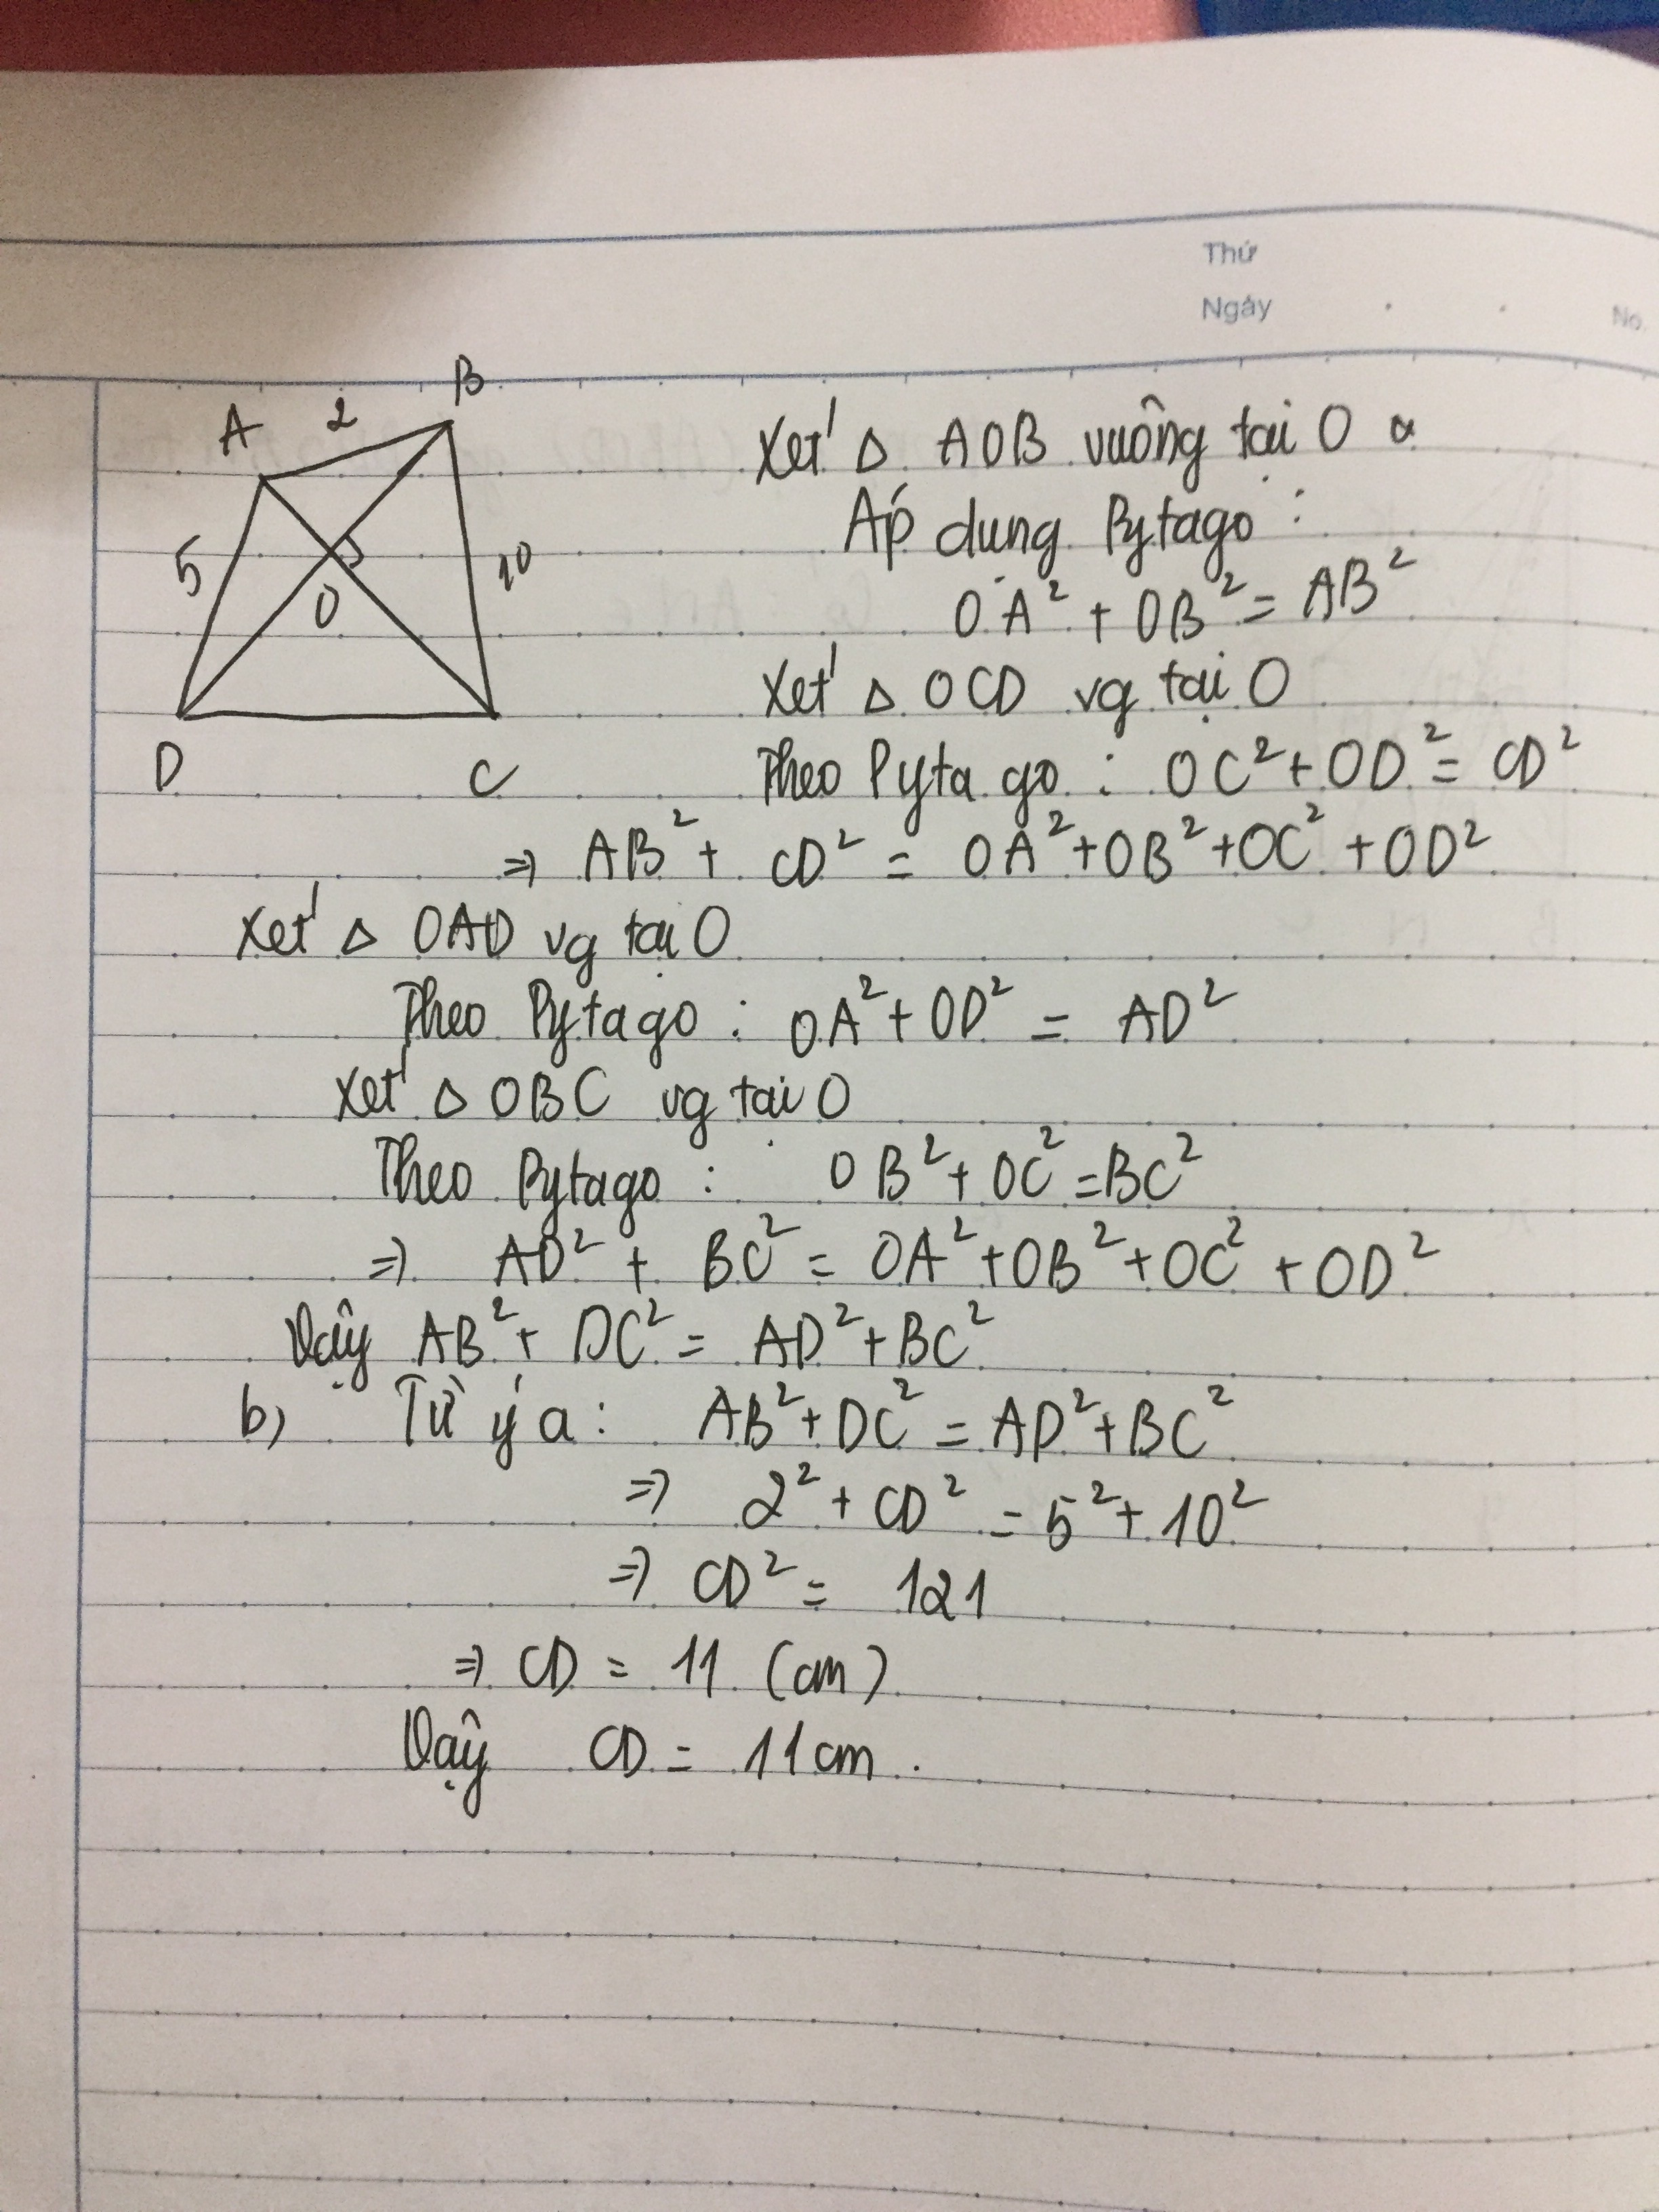 Thứ
Ngày
No.
A 2 B
5 O 10
D C
Xét Δ AOB vuông tại O
Áp dụng Pytago :
OA² + OB² = AB²
Xét Δ OCD vg tại O
Theo Pytago : OC² + OD² = CD²
⇒ AB² + CD² = OA² + OB² + OC² + OD²
Xét Δ OAD vg tại O
Theo Pytago : OA² + OD² = AD²
Xét Δ OBC vg tại O
Theo Pytago : OB² + OC² = BC²
⇒ AD² + BC² = OA² + OB² + OC² + OD²
Vậy AB² + DC² = AD² + BC²
b) Từ ý a : AB² + DC² = AD² + BC²
⇒ 2² + CD² = 5² + 10²
⇒ CD² = 121
⇒ CD = 11 (cm)
Vậy CD = 11cm .